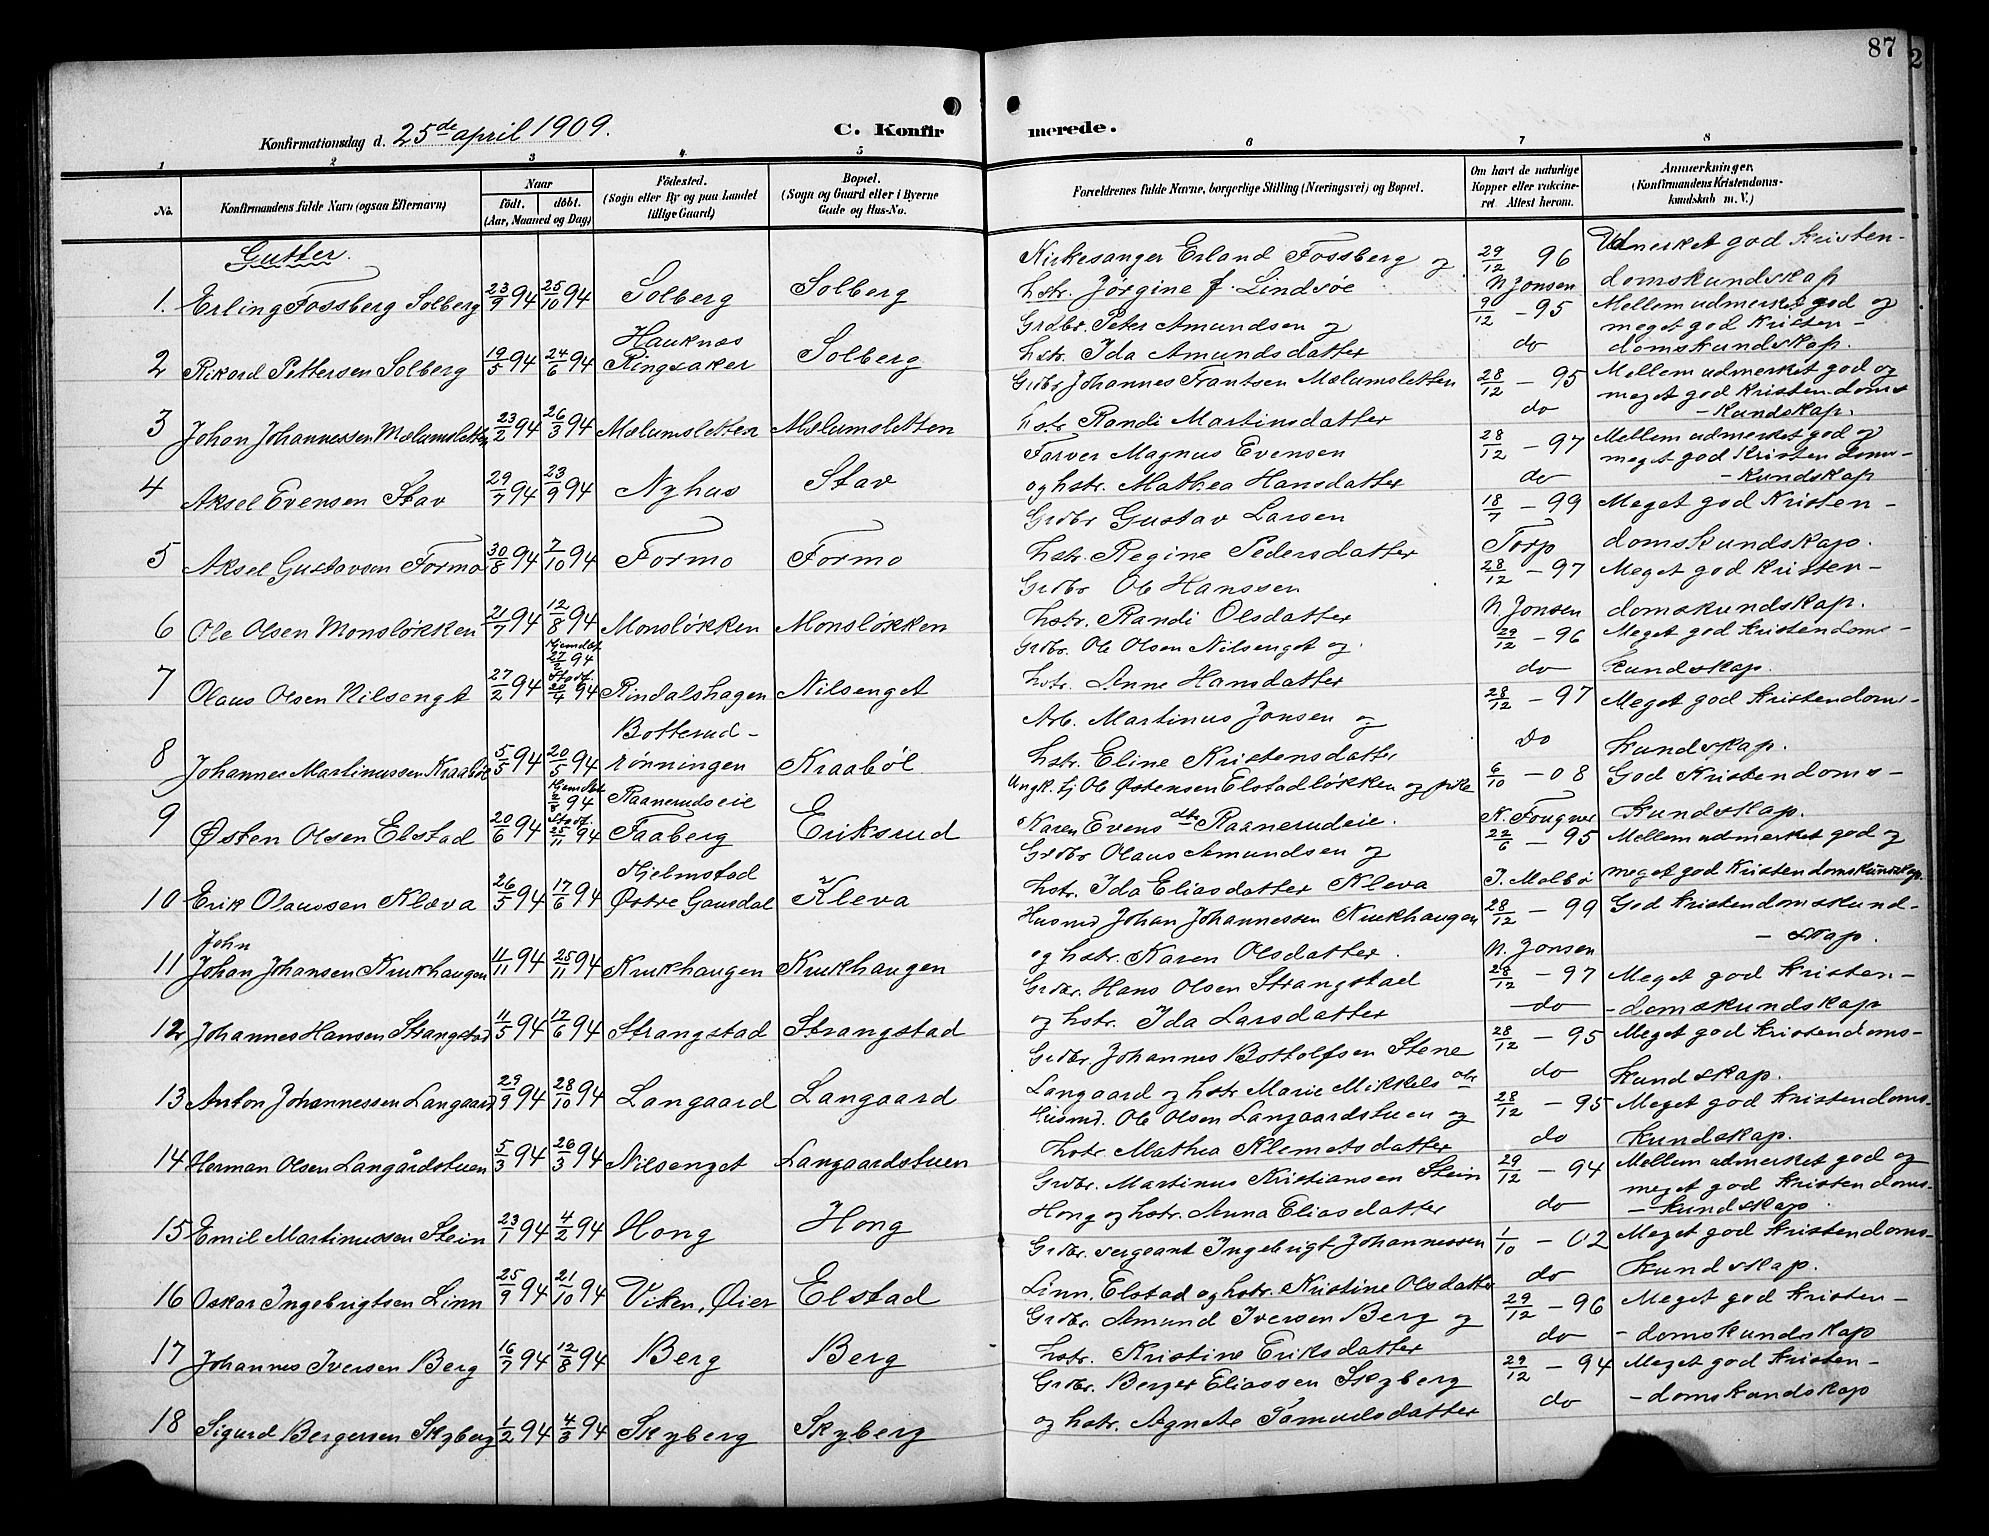 87
2
Konfirmationsdag d. 25de april 1909.
C. Konfirmerede.
1 2 3 4 5 6 7 8
No.
Konfirmandens fulde Navn (ogsaa Efternavn)
Naar
født. døbt.
(Aar, Maaned og Dag)
Fødested.
(Sogn eller By og paa Landet
tillige Gaard)
Bopæl.
(Sogn og Gaard eller i Byerne
Gade og Hus-No.
Forældrenes fulde Navne, borgerlige Stilling (Næringsvei) og Bopæl.
Om havt de naturlige
Kopper eller vakcine-
ret. Attest herom.
Anmærkninger,
(Konfirmandens Kristendoms-
kundskab m. V.)
Gutter.
1. Erling Fossberg Solberg 23/9 94 25/10 94 Solberg Solberg
Kirkesanger Erland Fossberg og 29/12 96 Udmerket god Kristen-
hstr. Jørgine f. Lindsøe N Jonsen domskundskap
2 Rikard Pettersen Solberg 19/5 94 24/6 94 Hauknes Ringsaker Solberg
Grdbr. Peter Amundsen og 9/12 - 95 Mellem udmerket god og
meget god Kristen-
hstr. Ida Amundsdatter do domskundskap.
3 Johan Johannessen Mælumsletten 23/2 94 26/3 94 Mælumsletten Mælumsletten
Grdbr Johannes Frantsen Mælumsletten 28/12 - 95 Mellem udmerket god og
meget god Kristendoms
hstr Randi Martinsdatter do -kundskap.
4 Aksel Evensen Stav 29/7 94 23/9 94 Nyhus Stav
Farver Magnus Evensen 28/12 - 97 Mellem udmerket god og
meget god Kristendoms-
og hstr. Mathea Hansdatter do -kundskap
5 Aksel Gustavsen Formo 30/8 94 7/10 94 Formo Formo
Grdbr Gustav Larsen 18/7 - 99 Meget god Kristen-
hstr. Regine Pedersdatter Torp domskundskap.
6 Ole Olsen Monsløkken 21/7 94 12/8 94 Monsløkken Monsløkken
Grdbr Ole Hanssen 28/12 - 97 Meget god Kristen-
hstr. Randi Olsdatter N. Jonsen domskundskap.
7 Olaus Olsen Nilsenget 27/2 94 Hjemdbt. 27/2 94 Stadf. 20/4 94 Rindalshagen Nilsenget
Grdbr. Ole Olsen Nilsenget og 29/12 - 96 Meget god Kristendoms-
hstr. Anne Hansdatter do kundskap.
8 Johannes Martinussen Kraabøl 5/5 94 20/5 94 Botterud-rønningen Kraabøl
Arb. Martinus Jonsen og 28/12 - 97 Meget god Kristendoms-
hstr. Eline Kristensdatter do kundskap.
9 Østen Olsen Elstad 20/6 94 Hjemdbt 94 Stadf. 25/11 94 Raanerudseie Faaberg Eriksrud
Ungk. tj Ole Østensen Elstadløkken og pike 6/10 - 08 God Kristendoms-
Karen Evensdtr Raanerudeie. K. Fougner kundskap.
10 Erik Olaussen Kleva 26/5 94 17/6 94 Hjelmstad Østre Gausdal Kleva
Grdbr Olaus Amundsen og 22/6 - 95 Mellem udmerket god og
hstr. Ida Eliasdatter Kleva J. Melbø meget god Kristendomskundskap.
11 John Johan Johansen Krukhaugen 4/11 94 25/11 94 Krukhaugen Krukhaugen
Husmd Johan Johannessen Krukhaugen 28/12 - 99 God Kristendomskund-
og hstr. Karen Olsdatter. N. Jonsen -skap.
12 Johannes Hansen Strangstad 11/5 94 17/6 94 Strangstad Strangstad
Grdbr. Hans Olsen Strangstad 28/12 - 97 Meget god Kristen-
og hstr. Ida Larsdatter do -domskundskap
13 Anton Johannessen Langaard 29/9 94 28/10 94 Langaard Langaard
Grdbr. Johannes Bottolfsen Stene 28/12 - 95 Meget god Kristendoms-
Langaard og hstr Marie Mikkelsdtr do kundskap.
14 Herman Olsen Langårdstuen 5/3 94 26/3 94 Nilsenget Langaardstuen
Husmd. Ole Olsen Langaardstuen og 28/12 - 95 Meget god Kristendoms-
hstr Mathea Klemetsdatter do kundskap.
15 Emil Martinussen Stein 23/1 94 4/2 94 Hong Hong
Grdbr. Martinus Kristiansen Stein 29/12 - 94 Mellem udmerket god og
meget god Kristendoms-
Hong og hstr. Anna Eliasdatter do -kundskap
16 Oskar Ingebrigtsen Linn 25/9 94 21/10 94 Viken, Øier Elstad
Grdbr. sergeant Ingebrigt Johannessen 1/10 - 02 Meget god Kristendoms-
Linn, Elstad og hstr. Kristine Olsdatter do kundskap.
17 Johannes Iversen Berg 16/7 94 12/8 94 Berg Berg
Grdbr. Amund Iversen Berg og 29/12 - 96 Meget god Kristen-
hstr. Kristine Eriksdatter do -domskundskap
18 Sigurd Bergersen Skyberg 1/2 94 4/3 94 Skyberg Skyberg
Grdbr. Berger Eliassen Skyberg 29/12 - 94 Meget god Kristen-
og hstr. Agnete Samuelsdatter do -domskundskap